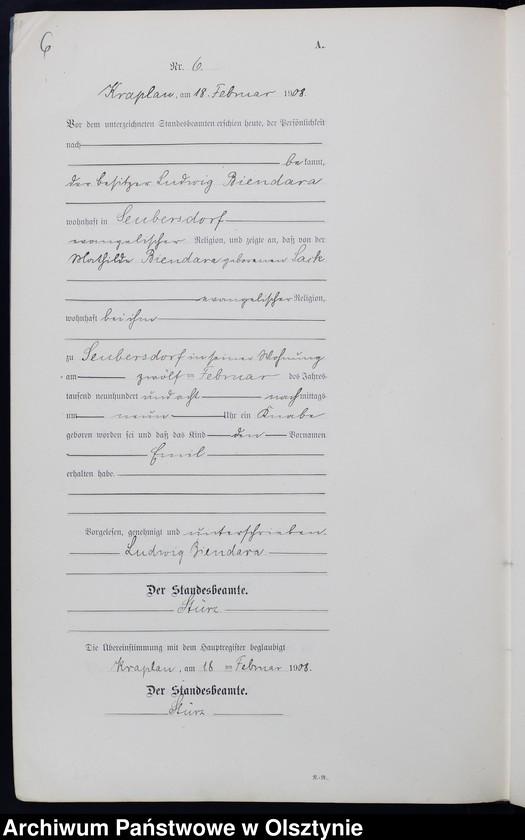 6
A.
Nr. 6.
Kraplau, am 18. Februar 1908.
Vor dem unterzeichneten Standesbeamten erschien heute, der Persönlichkeit
nach
bekannt,
der Besitzer Ludwig Biendara
wohnhaft in Seubersdorf
evangelischer Religion, und zeigte an, daß von der
Mathilde Biendara geborenen Sack
evangelischer Religion,
wohnhaft bei ihm
zu Seubersdorf in seiner Wohnung
am zwölften Februar des Jahres
tausend neunhundert und acht nachmittags
um neun Uhr ein Knabe
geboren worden sei und daß das Kind den Vornamen
Emil
erhalten habe.
Vorgelesen, genehmigt und unterschrieben.
Ludwig Biendara
Der Standesbeamte.
Stürz
Die Übereinstimmung mit dem Hauptregister beglaubigt
Kraplau, am 18 ten Februar 1908.
Der Standesbeamte.
Stürz
Archiwum Państwowe w Olsztynie